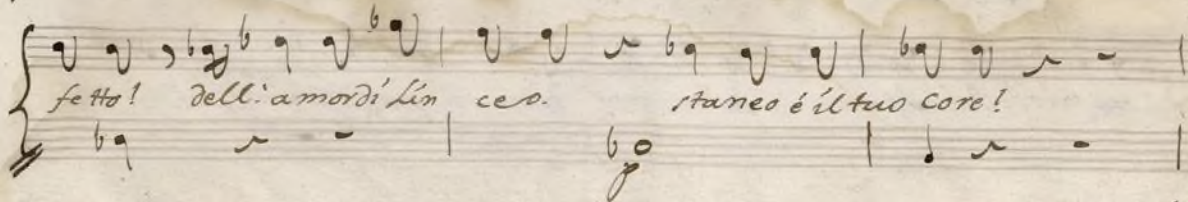 fetto! dell'amor di Lin ceo. staneo é il tuo core!